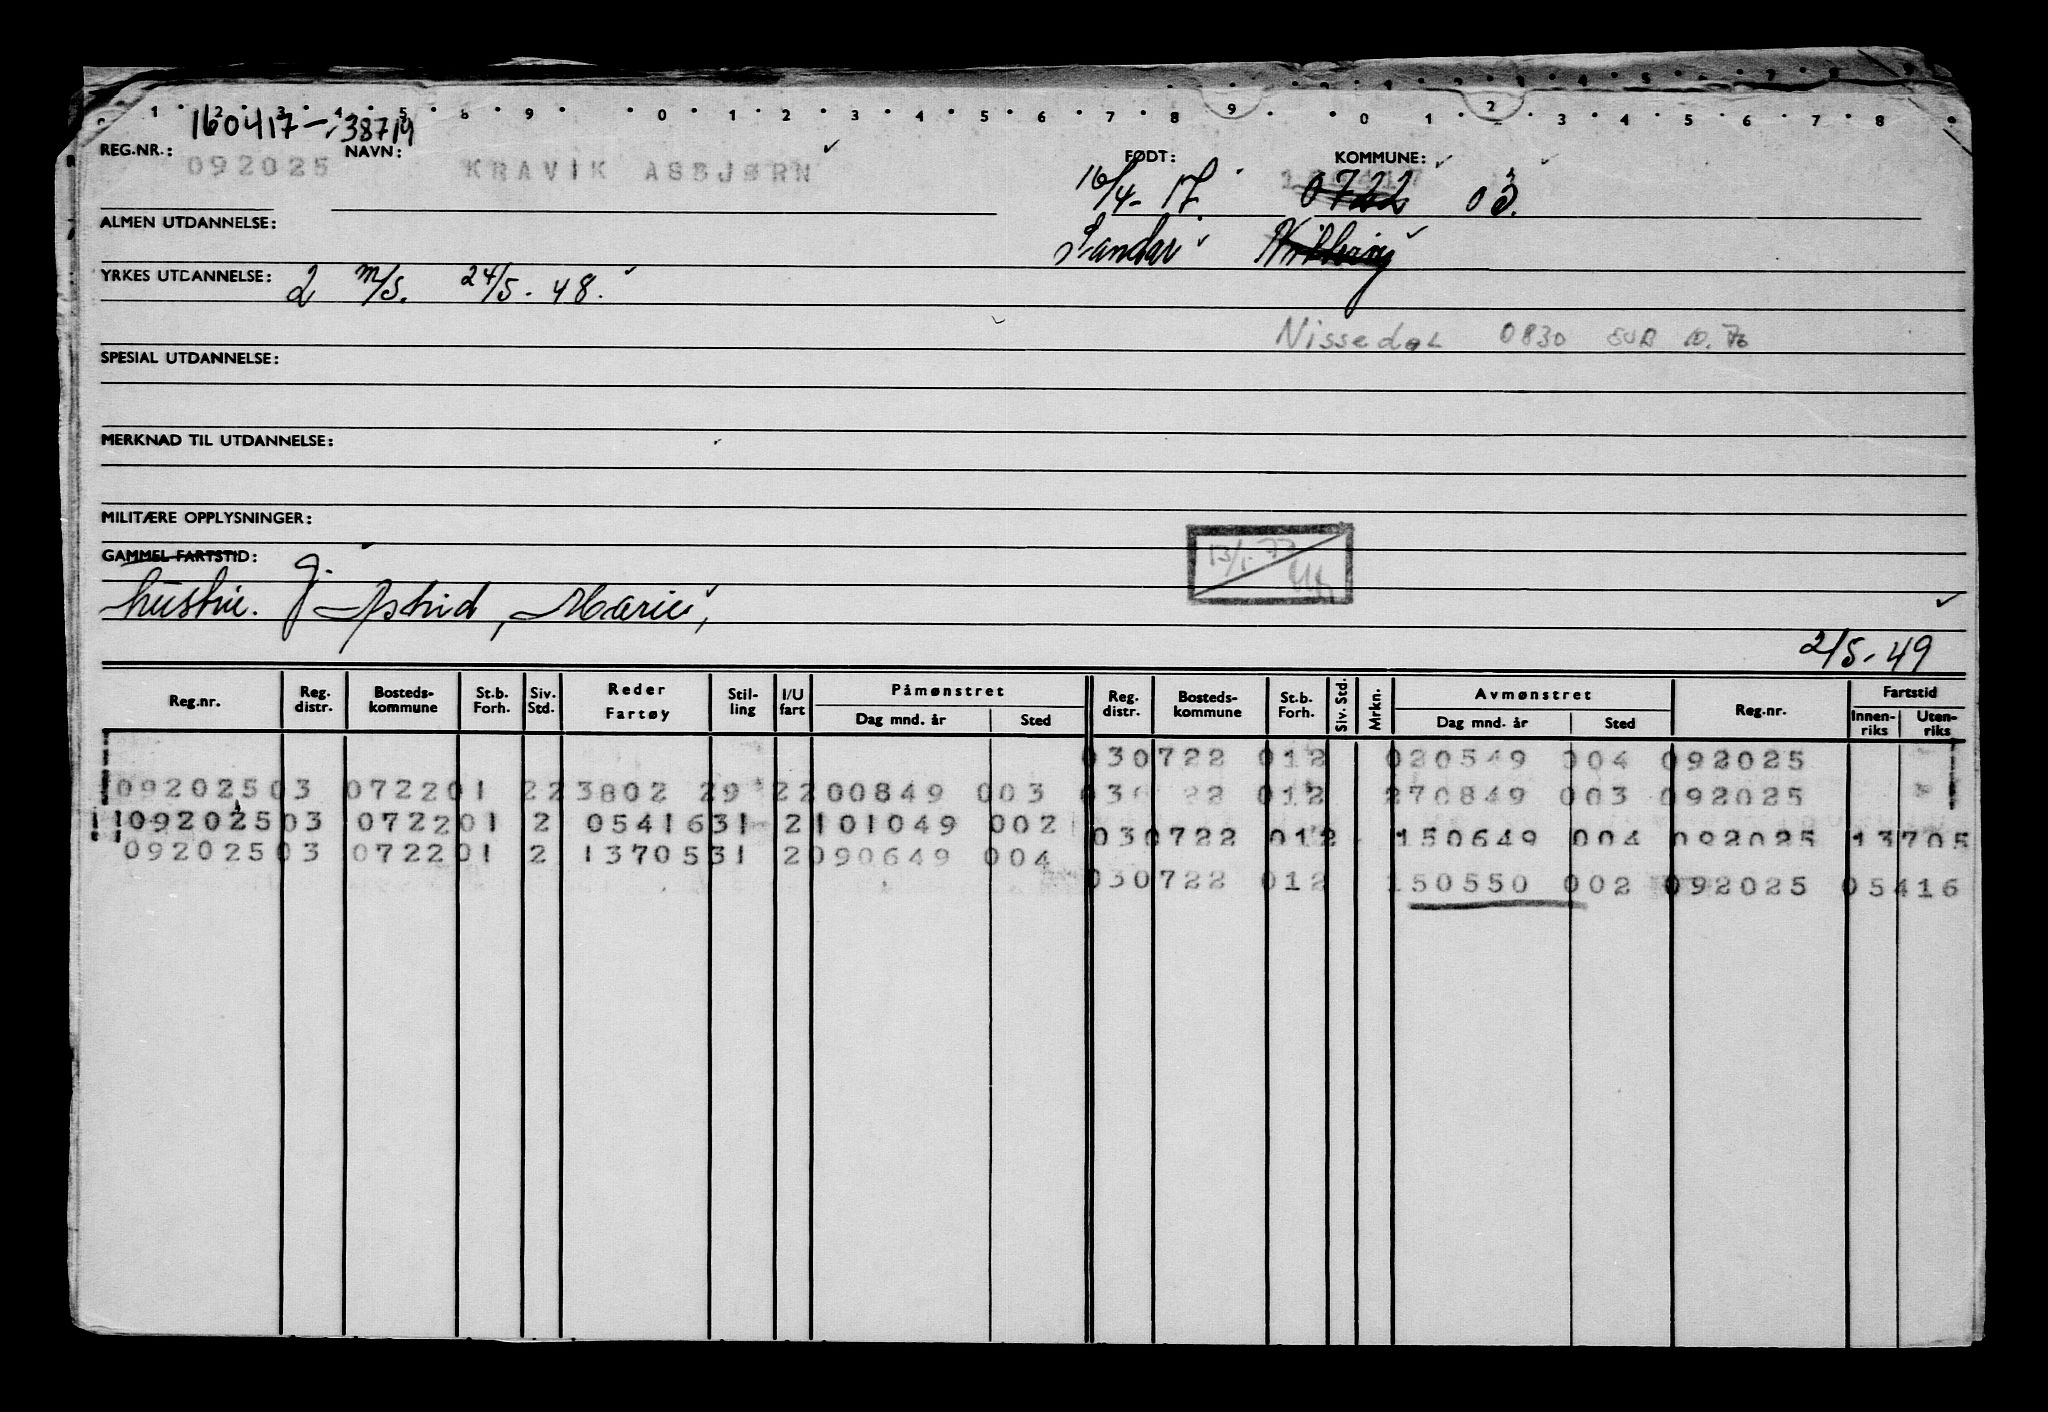 160417-38719
REG.NR.: NAVN: FØDT: KOMMUNE:
092025 KRAVIK ASBJØRN 16/4-17 0722 03.
ALMEN UTDANNELSE: Sandar
YRKES UTDANNELSE: 2 m/s. 24/5-48.
Nissedal 0830 10.70
SPESIAL UTDANNELSE:
MERKNAD TIL UTDANNELSE:
MILITÆRE OPPLYSNINGER:
GAMMEL FARTSTID: g.
hustru. Astrid, Marie,
13/1-77
2/5-49
Reg.nr. Reg. distr. Bosteds-kommune St.b. Forh. Siv. Std. Reder Fartøy Stil-ling I/U fart Påmønstret Dag mnd. år Sted Reg. distr. Bosteds-kommune St.b. Forh. Siv. Std. Mrkn. Avmønstret Dag mnd. år Sted Reg.nr. Fartstid Innen-riks Uten-riks
030722 012 020549 004 092025
09202503 072201 223802 29 2200849 003 03 22 012 270849 003 092025
09202503 072201 2 0541631 2101049 002 030722 012 150649 004 092025 13705
09202503 072201 2 1370531 2090649 004
030722 012 150550 002 092025 05416